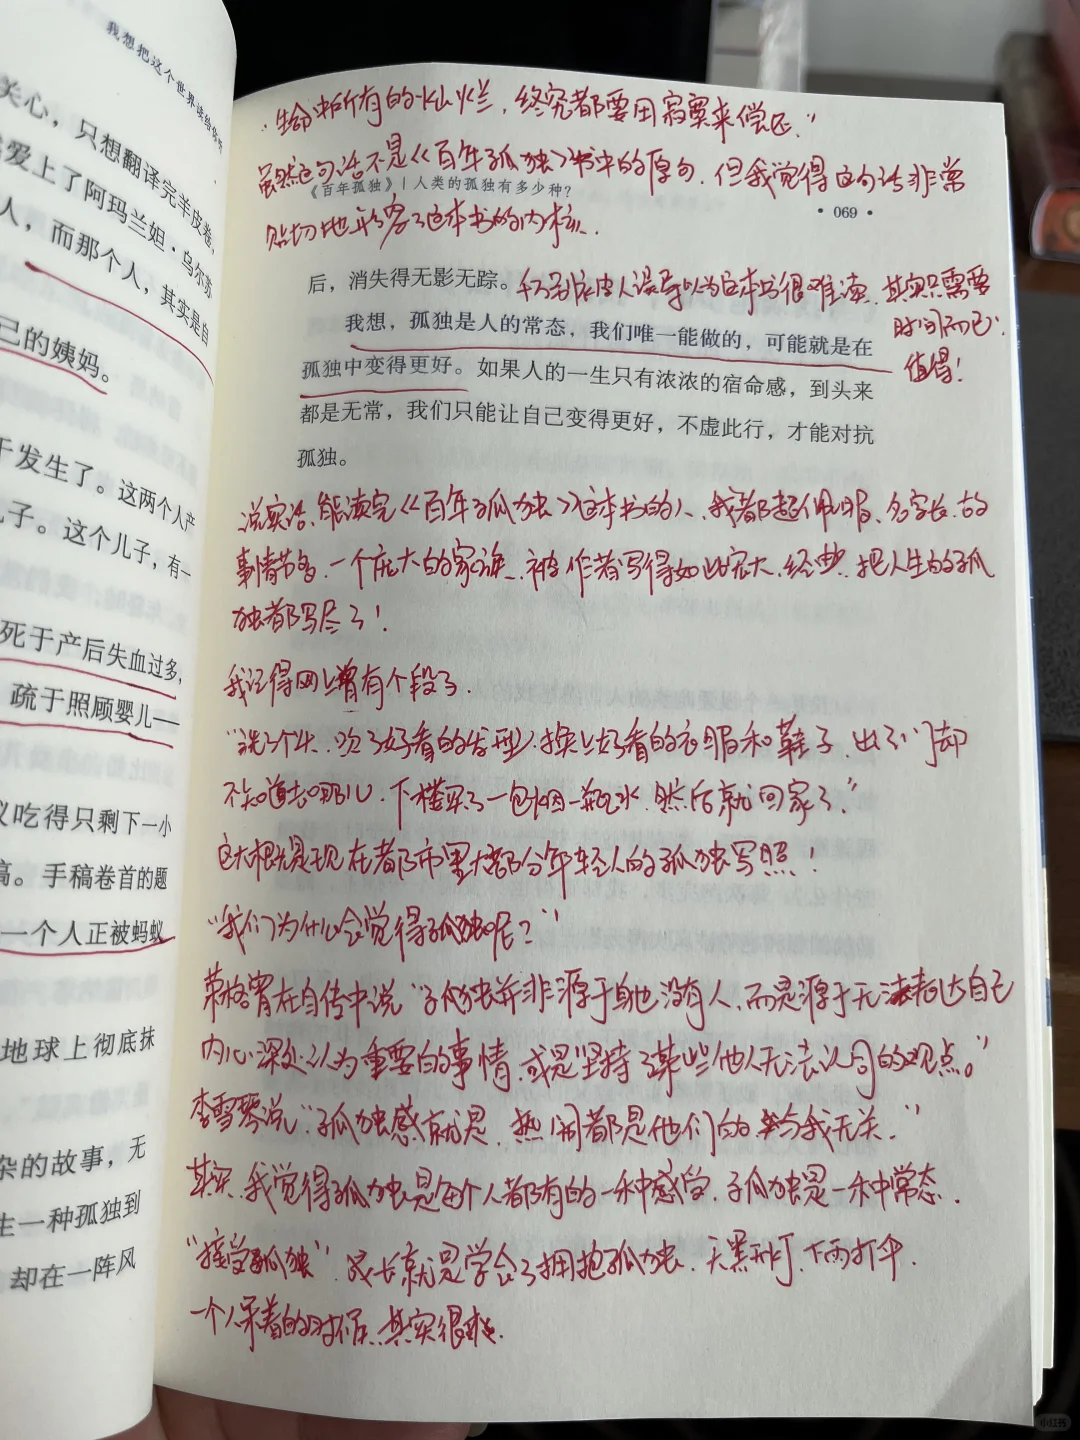 我想把这个世界读给你听
关心，只想翻译完羊皮卷，
爱上了阿玛兰妲·乌尔苏
人，而那个人，其实是自
己的姨妈。
于发生了。这两个人产
儿子。这个儿子，有一
死于产后失血过多，
疏于照顾婴儿——
蚁吃得只剩下一小
高。手稿卷首的题
一个人正被蚂蚁
地球上彻底抹
杂的故事，无
生一种孤独到
却在一阵风
“生命中所有的灿烂，终究都要用寂寞来偿还。”
虽然这句话不是《百年孤独》书中的原句，但我觉得这句话非常
《百年孤独》|人类的孤独有多少种？
• 069 •
贴切地形容了这本书的内核。
后，消失得无影无踪。
千万别被人误导以为这本书很难读，其实只需要
时间而已，
值得！
我想，孤独是人的常态，我们唯一能做的，可能就是在
孤独中变得更好。如果人的一生只有浓浓的宿命感，到头来
都是无常，我们只能让自己变得更好，不虚此行，才能对抗
孤独。
说实话，能读完《百年孤独》这本书的人，我都超佩服，名字长，故
事情节多，一个庞大的家族，被作者写得如此宏大、经典，把人生的孤
独都写尽了！
我记得网上曾有个段子，
“洗了个头，吹了好看的发型，换上好看的衣服和鞋子，出了门却
不知道去哪儿，下楼买了一包烟一瓶水，然后就回家了。”
这大概就是现在都市里大部分年轻人的孤独写照！
“我们为什么会觉得孤独呢？”
荣格曾在自传中说“孤独并非源于身边没有人，而是源于无法表达自己
内心深处认为重要的事情，或是坚持了某些他人无法认同的观点。”
李雪琴说“孤独感就是，热闹都是他们的，与我无关。”
其实，我觉得孤独是每个人都有的一种感受，孤独是一种常态，
“接受孤独”，成长就是学会了拥抱孤独，天黑开灯，下雨打伞，
一个人呆着的时候，其实很